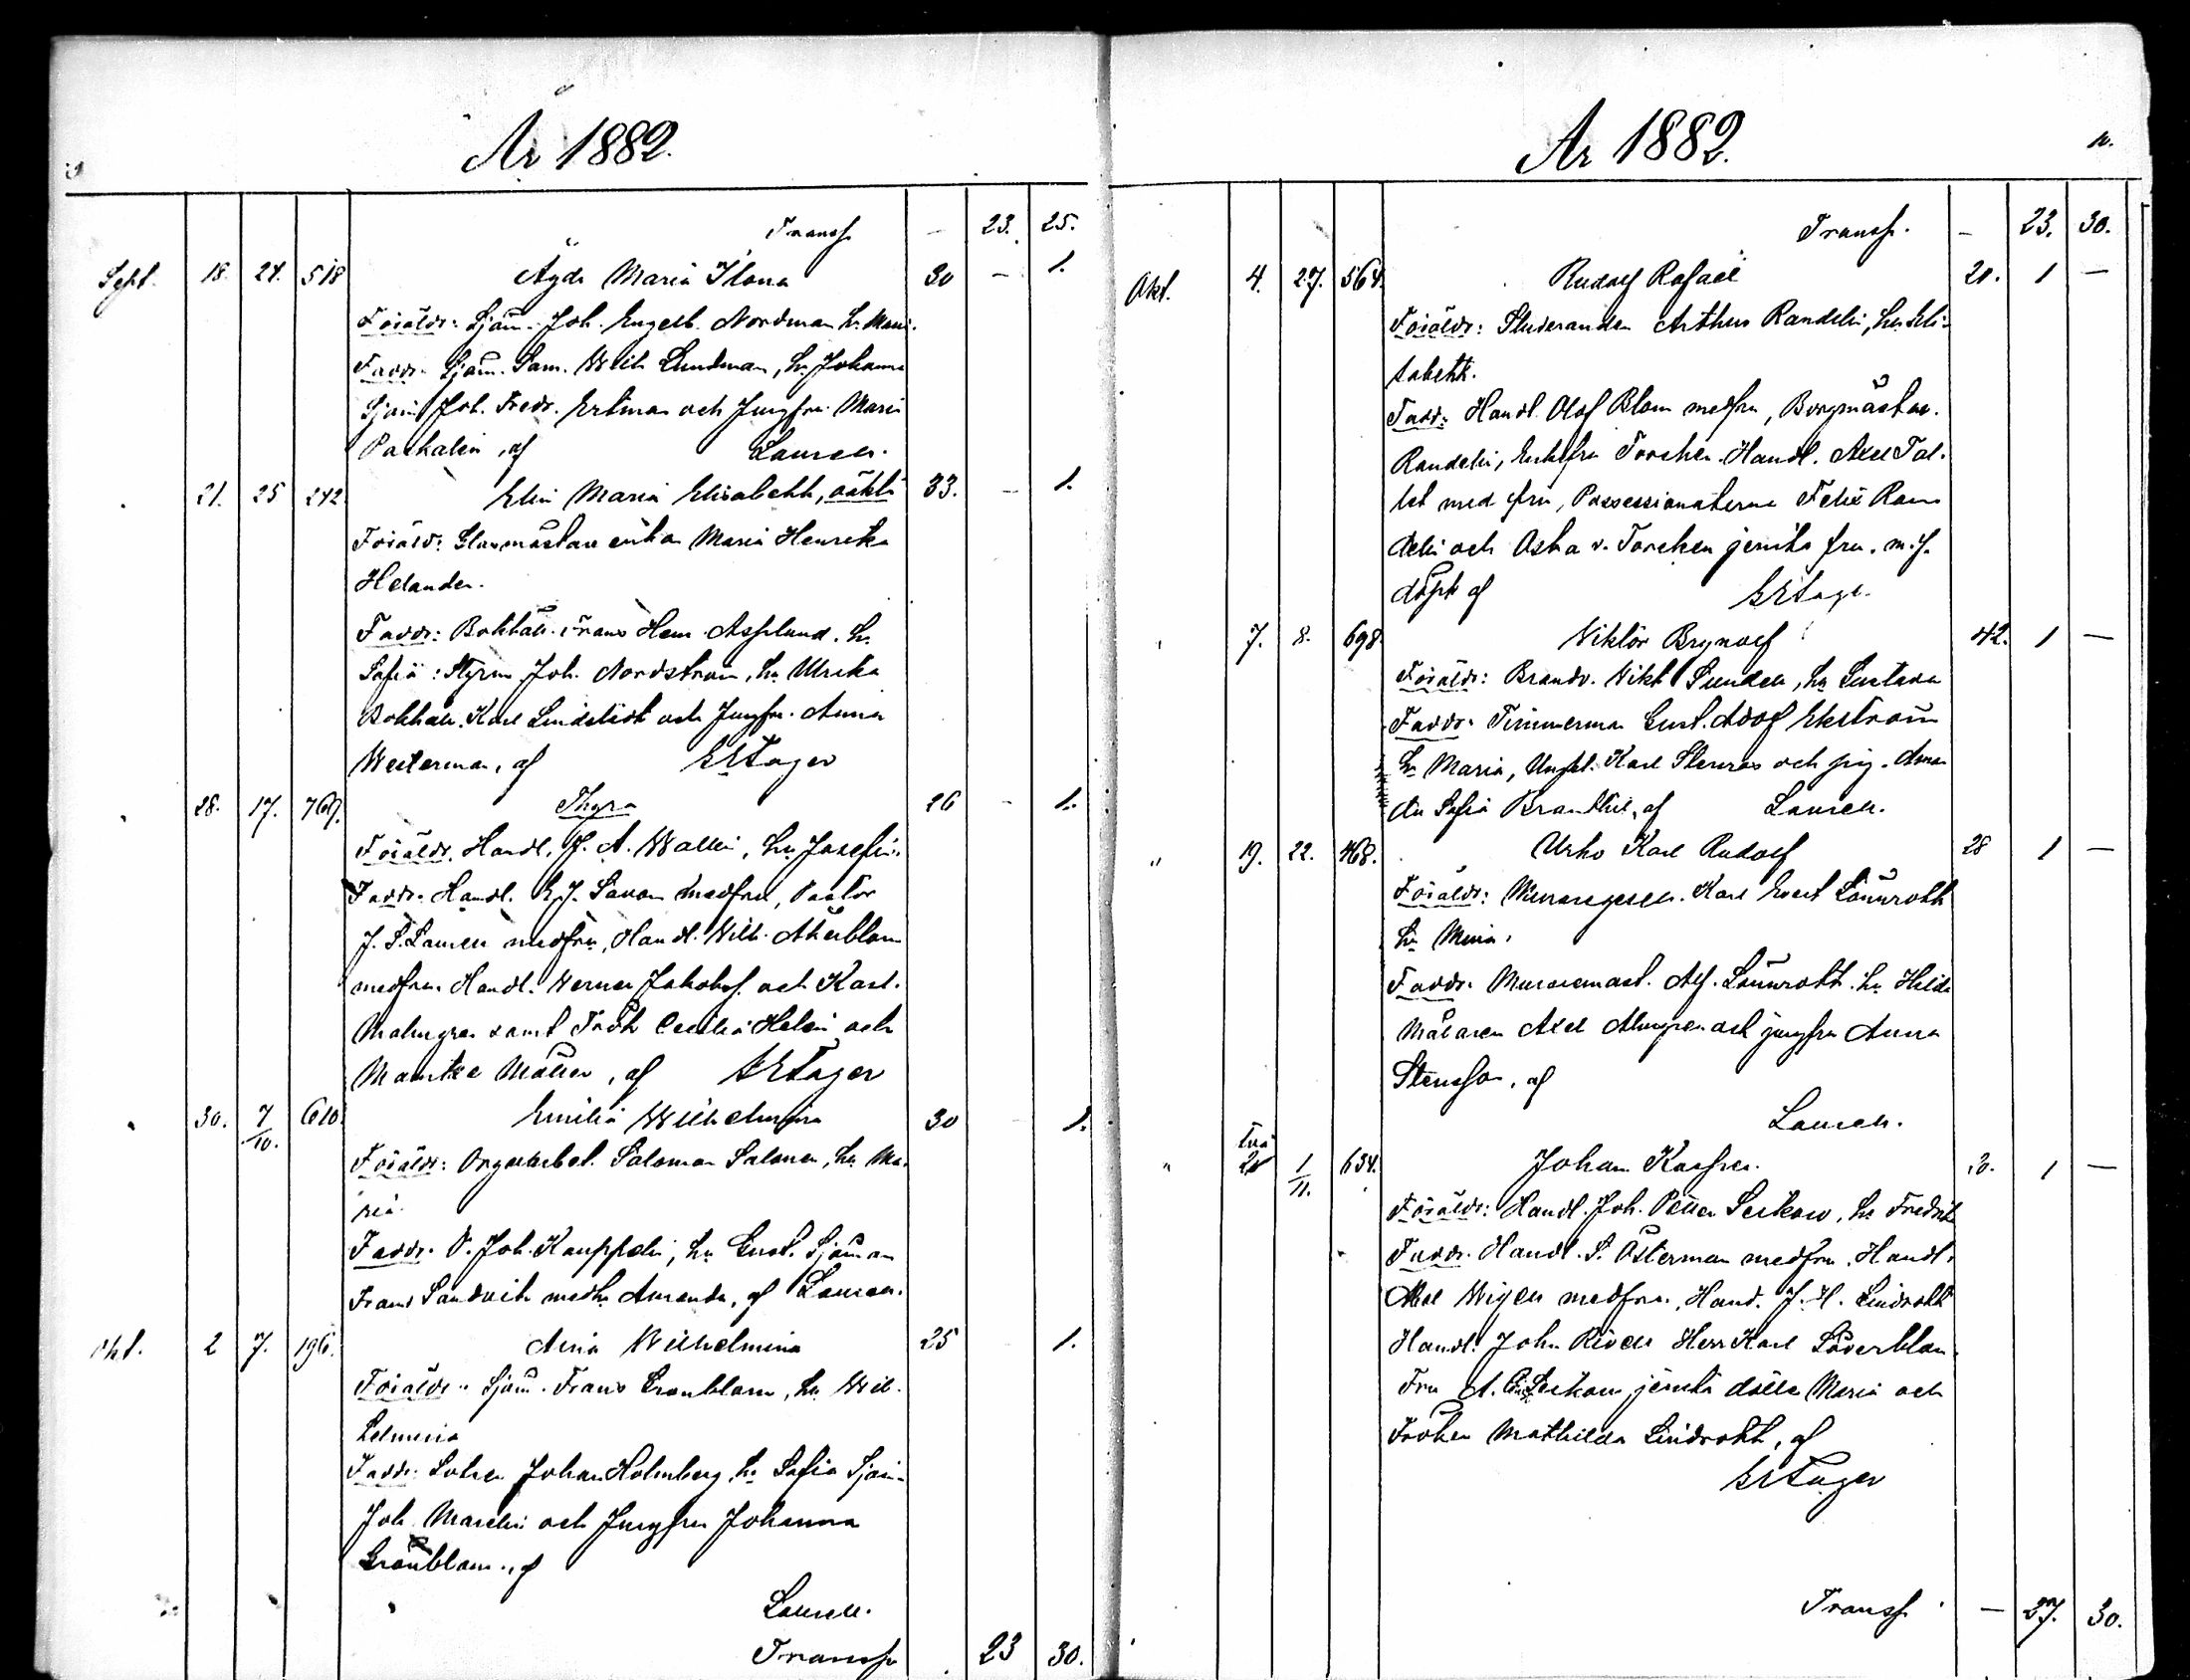 År 1882.
Transp. — 23. 25.
Sept. 18. 24. 518 Ayda Maria Ilona 30 — 1.
Föräldr: Sjöm. Joh. Engelb. Nordman h. Maria.
Faddr. Sjöm. Sam. Wilh Lundman, h. Johanna
Sjöm Joh. Fredr. Ertman och Jungfru Maria
af Laurell.
21. 25 242. Elin Maria Elisabeth, oäkta 33. — 1.
Föräld: Glasmästare enkan Maria Henrika
Helander.
Faddr: Bokhåll. Frans Hem. Asplund, h.
Sofia: Styrm Joh. Nordström, h. Ulrika
Bokhåll. Karl Lindstedt och Jungfr. Anna
Westerman, af
28. 17. 767. Thyra 26 — 1.
Föräldr. Handl. J. A. Wallin, h. Josefin.
Faddr. Handl. E. J. Savon med fru, Pastor
J. S. Laurell med fru, Handl. Wilh. Åkerblom
med fru Handl. Werner Jakobs. och Karl.
Malmgren samt Frök Cecilia Helin och
Möller, af
30. 7/10. 610. Emilia Wilhelmina 30 1.
Föräldr: Salomon Salonen, h. Ma-
ria.
Faddr. Joh. Kauppelin, h. Gust. Sjöman
Frans Sandvik med h. Amanda, af Laurell.
Okt. 2 7. 196. Aina Wilhelmina 25 1.
Föräldr. Sjöm. Frans Grönblom, h. Wil-
helmina
Faddr: Lotsen Johan Holmberg, h. Sofia Sjöm.
Joh Marelin och Jungfru Johanna
Grönblom, af
Laurell.
Transp 23 30.
År 1882. 10.
Transp. — 23. 30.
Okt. 4. 27. 564. Rudolf Rafael 21. 1 —
Föräldr: Studeranden Arthur Randelin, h. Eli-
sabeth.
Fadd: Handl. Olof Blom med fru, Borgmästar.
Randelin, Enkefru Forsten. Handl. Axel Tal-
let med fru, Possessionaterna Felix Ran-
delin och v. Torcken jemte fru. m. fl.
döpt af
7. 8. 698. Viktor Brynolf 42. 1 —
Föräldr: Brandv. Vikt Sundell, h. Gustava
Faddr. Timmerman Gust. Adolf Ekström
h. Maria, Ungk. Karl Stenros och pig. Aman-
da Sofia af Laurell.
" 19. 22. 468. Urho Karl Rudolf 28 1 —
Föräldr: Muraregesell. Karl Evert Lönnroth
h. Mina.
Faddr. Muraremäst. Alf. Lönnroth. h. Hilda
Målaren Axel Almgren och jungfru Anna
af
Laurell.
" 1/11. 654. Johan Kasper. 20. 1 —
Föräldr: Handl. Joh. Petter Serkow, h. Fredrika
Faddr. Handl. S. Österman med fru. Handl.
Axel Wigell med fru, Hand. J. H. Lindroth
Handl. John Rivell Herr Karl Söderblom.
Fru A. Serkow jemte dotter Maria och
Fröken Mathilda Lindroth, af
Transp. — 27. 30.